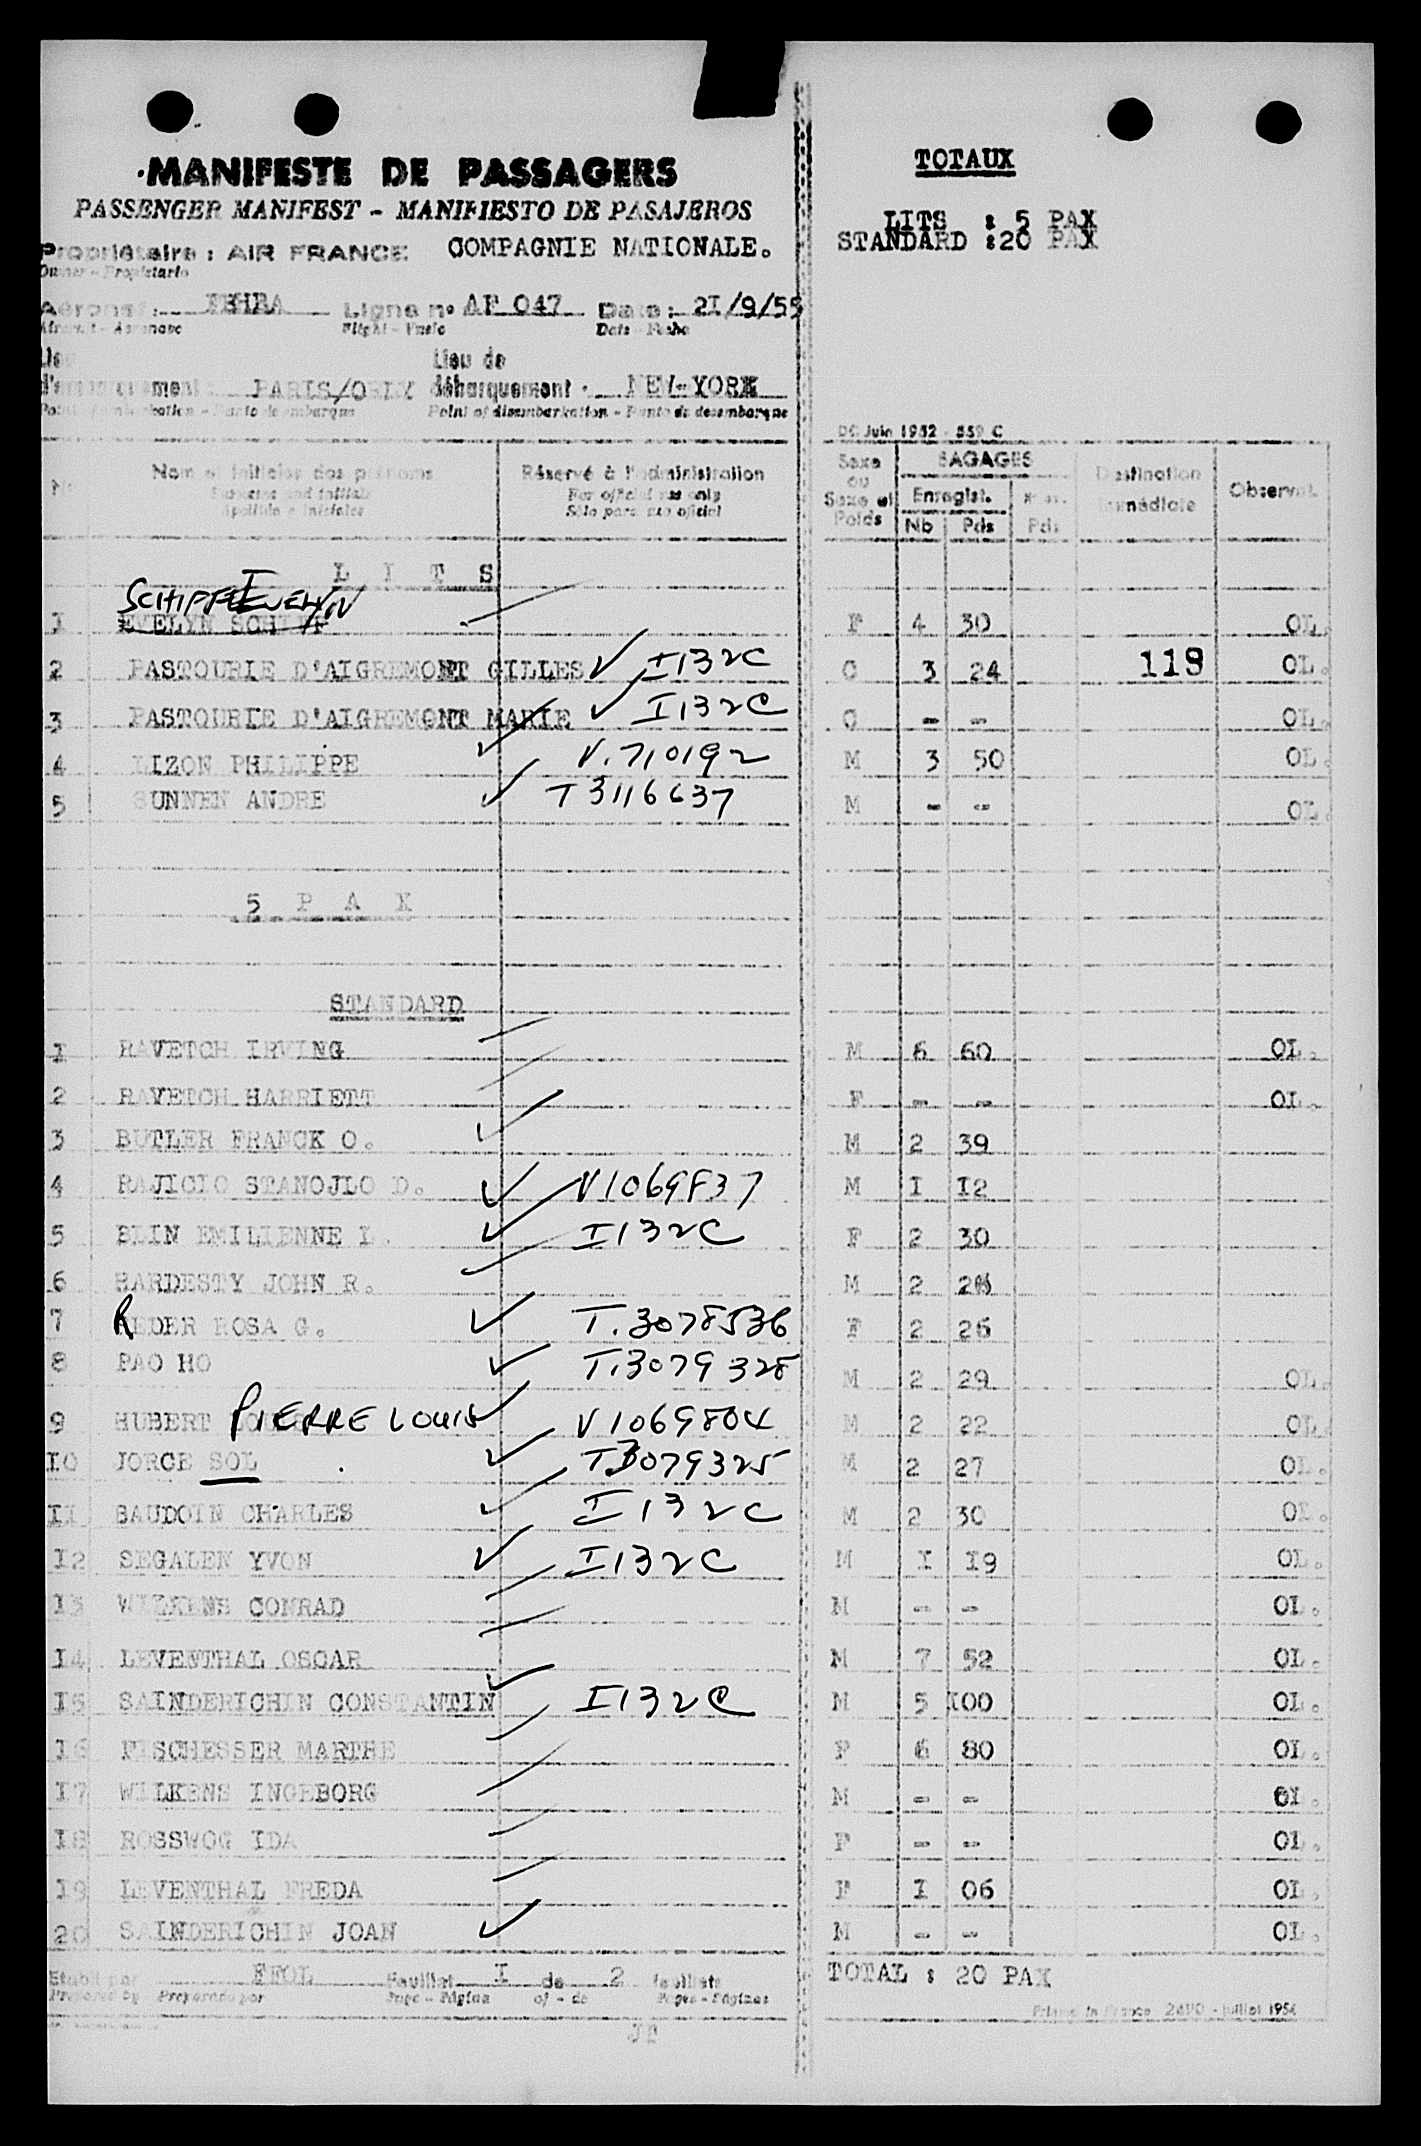 MANIFESTE DE PASSAGERS
PASSENGER MANIFEST - MANIFIESTO DE PASAJEROS
Propriétaire : AIR FRANCE COMPAGNIE NATIONALE.
Owner - Propietario
Aéronef : FBHBA Ligne n° AF 047 Date : 2I/9/55
Aircraft - Aeronave Flight - Vuelo Date - Fecha
Lieu d'embarquement : PARIS/ORLY Lieu de débarquement : NEW-YORK
Point of embarkation - Punto de embarque Point of disembarkation - Punto de desembarque
TOTAUX
LITS : 5 PAX
STANDARD :20 PAX
DC Juin 1952 - 559 C
Nom et initiales des prénoms Réservé à l'administration Sexe ou Sexe et Poids BAGAGES Enregist. Nb Pds Pds Destination immédiate Observat.
Surname and initials For official use only
Apellido e iniciales Sólo para uso oficial
L I T S
SCHIPFF EVELYN
I EVELYN SCHIFF F 4 30 OL.
2 PASTOURIE D'AIGREMONT GILLES I132C C 3 24 118 OL.
3 PASTOURIE D'AIGREMONT MARIE I132C C - - OL.
4 LIZON PHILIPPE V.710192 M 3 50 OL.
5 SUNNEN ANDRE T3116637 M - - OL.
5 P A X
STANDARD
I RAVETCH IRVING M 6 60 OL.
2 RAVETCH HARRIETT F - - OL.
3 BUTLER FRANCK O. M 2 39
4 RAJICIC STANOJLO D. V1069837 M I I2
5 BLIN EMILIENNE L. I132C F 2 30
6 HARDESTY JOHN R. M 2
7 REDER ROSA G. T.3078536 F 2 26
8 PAO HO T.3079328 M 2 29 OL.
9 HUBERT PIERRE LOUIS V1069804 M 2 22 OL.
IO JORGE SOL T3079325 M 2 27 OL.
II BAUDOIN CHARLES I132C M 2 30 OL.
I2 SEGALEN YVON I132C M I I9 OL.
I3 WILKENS CONRAD M - - OL.
I4 LEVENTHAL OSCAR M 7 52 OL.
I5 SAINDERICHIN CONSTANTIN I132C M 5 I00 OL.
I6 FISCHESSER MARTHE F 6 80 OL.
I7 WILKENS INGEBORG M - - OL.
I8 ROSSWOG IDA F - - OL.
I9 LEVENTHAL FREDA F I 06 OL.
20 SAINDERICHIN JOAN M - - OL.
Etabli par FFOL Feuillet I de 2 feuillets
Prepared by Preparado por Page - Página of - de Pages - Páginas
TOTAL : 20 PAX
Printed in France 2490 - juillet 1954